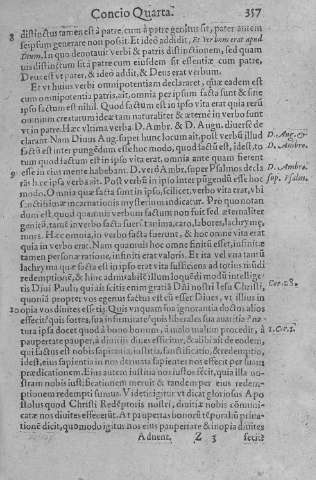 Concio Quarta. 357
8 distinctus tamen est à patre, cum à patre genitus sit, pater autem
seipsum generare non possit. Et ideò addidit, Et Verbum erat apud
Deum. In quo denotatur verbi & patris distinctionem, sed quam
uis distinctum sit à patre cum eiusdem sit essentiæ cum patre,
Deus est vt pater, & ideò addit, & Deus erat verbum.
Et vt huius verbi omnipotentiam declararet, quæ eadem est
cum omnipotentia patris, ait, omnia per ipsum facta sunt & sine
ipso factum est nihil. Quod factum est in ipso vita erat quia rerū
omnium creatarum ideæ tam naturaliter & æternè in verbo sunt
vt in patre. Hæc vltima verba D. Ambr. & D. Augu. diuersè de
clarant Nam Diuus Aug. super hunc locum ait, post verbū illud
factū est interpungēdum esse hoc modo, quod factū est, idest, to
dum quod factum est in ipso vita erat, omnia ante quam fierent
D. Aug. &
D. Ambro.
9 esse in eius mente habebant. D. verò Ambr. super Psalmos decla
rās hæc ipsa verba ait. Post verbū in ipso interpūgendū esse hoc
D. Ambro.
sup. Psalm.
modo. O omnia quæ facta sunt in ipso, scilicet, verbo vita erat, vbi
sanctissimæ incarnationis mysterium indicatur. Pro quo notan
dum est, quod quamuis verbum factum non fuit sed æternaliter
genitū, tamē in verbo facta fuerūt anima, caro, labores, lachrymę,
mors. Hæc omnia, in verbo facta fuerunt, & hoc omne vita erat
quia in verbo erat. Nam quamuis hoc omne finitū esset, infinitæ
tamen personæ ratione, infiniti erat valoris. Et ita vel vna tantū
lachryma quæ facta est in ipso erat vita sufficiens ad totius mūdi
redemptionē, & hinc admirabilē illum loquēdi modū intellige-
tis Diui Pauli qui ait scitis enim gratiā Dñi nostri Iesu Christi,
quoniā propter vos egenus factus est cū esset Diues, vt illius in
Cor. 28.
10 opia vos diuites essetis. Quis vnquam sua ignorantia doctos alios
effecit? quis fortes, sua infirmitate? quis liberales sua auaritia? na
tura ipsa docet quod à bono bonum, à malo malum procedit, à
1. Cor. 1.
paupertate pauper, à diuitijs diues efficitur, & alibi ait de eodem,
qui factus est nobis sapientia, iustitia, sanctificatio, & redemptio,
idest, eius sapientia in nos deriuata sapientes nos effecit per suam
prædicationem. Eius autem iustitia nos iustos fecit, quia illa no-
stram nobis iustificationem meruit & tandem per eius redem-
ptionem redempti sumus. Videtis igitur vt dicat gloriosus Apo
stolus quod Christi Redēptoris nostri, diuitiæ nobis cōmuni-
catæ nos diuites effecerūt. At paupertas bonorū tēporaliū priua-
tionē dicit, quomodo igitur nos eius paupertate & inopia diuites
Aduent. Z 3 fecit?